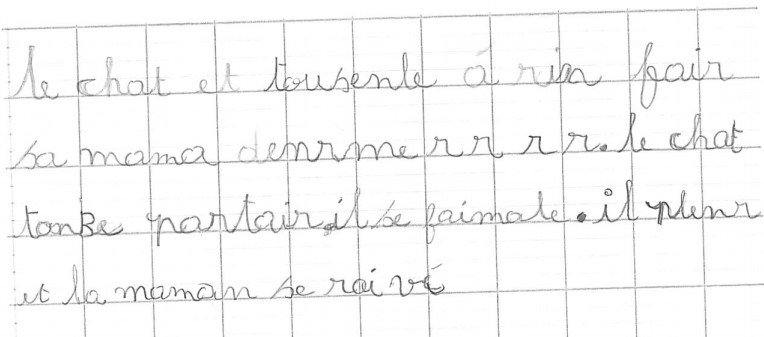 le chat et tousenle a rien fair
sa mama denrme rr rr. le chat
tonBe partair.il se faimale. il plenr
et la maman se raivé